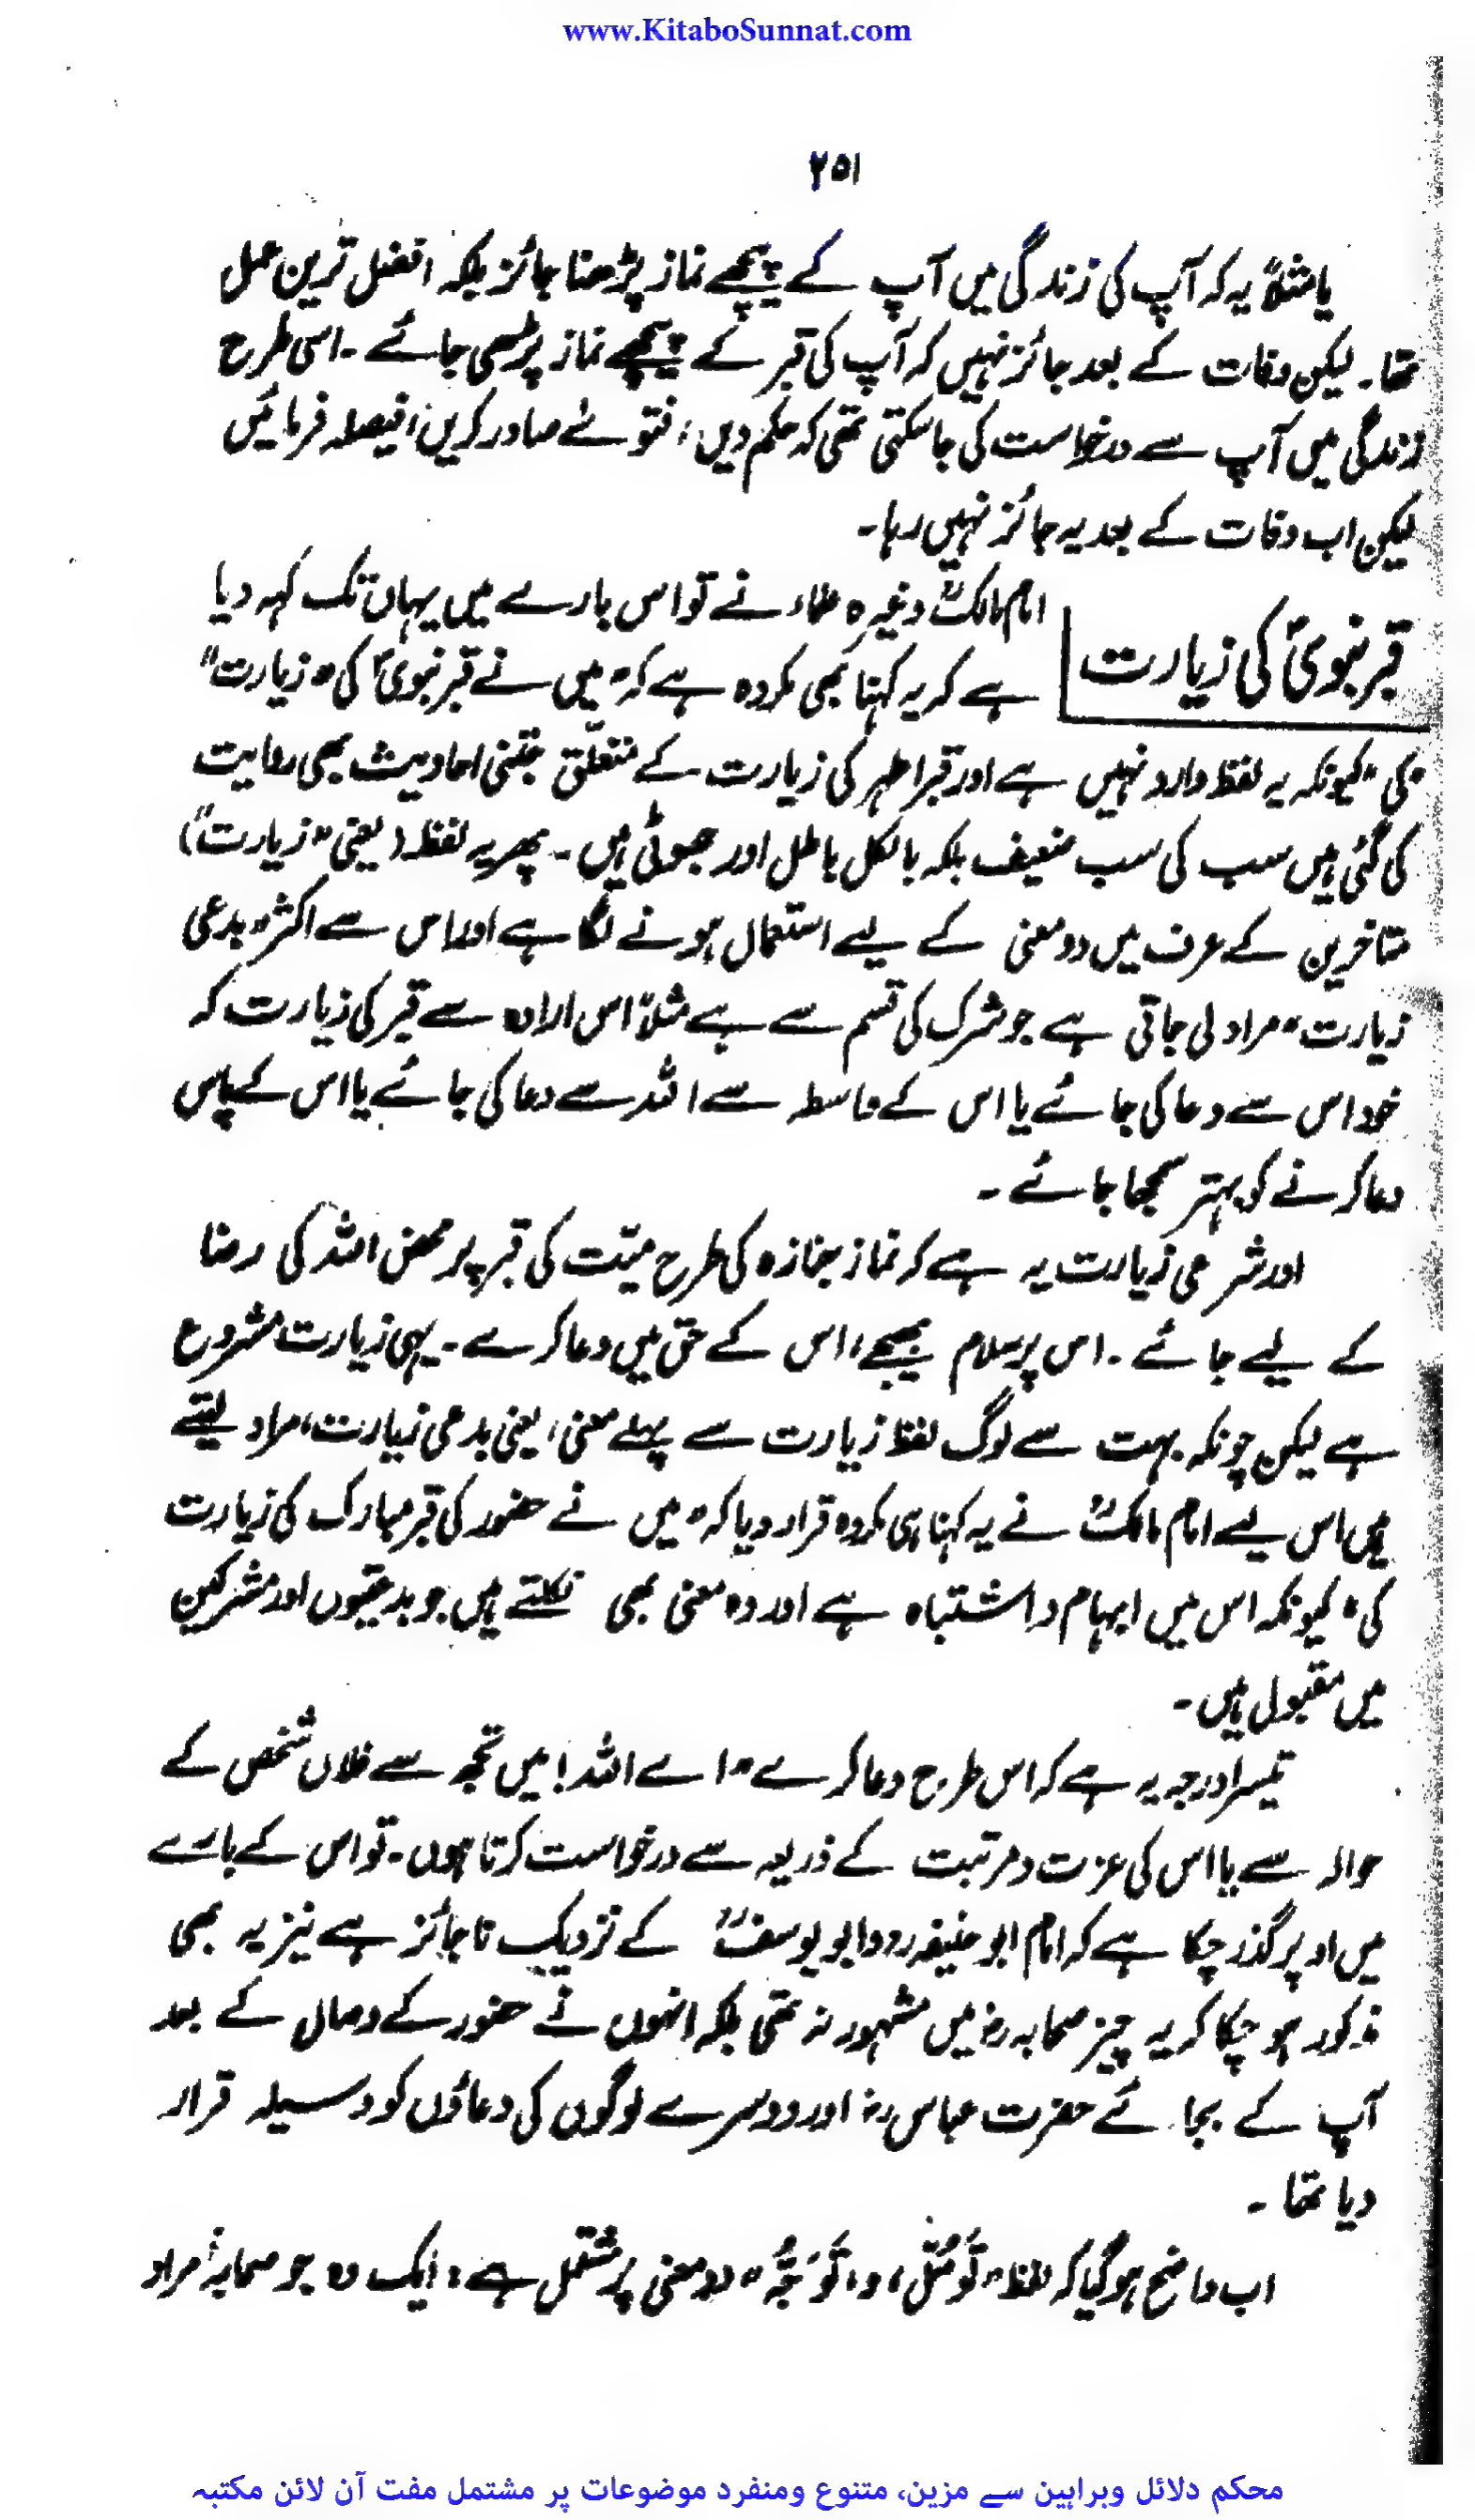 www.KitaboSunnat.com
۲۵۱
یا مثلاً یہ کہ آپ کی زندگی میں آپ کے پیچھے نماز پڑھنا جائز بلکہ افضل ترین عمل
تھا۔ لیکن وفات کے بعد جائز نہیں کہ آپ کی قبر کے پیچھے نماز پڑھی جائے۔ اسی طرح
زندگی میں آپ سے درخواست کی جا سکتی تھی کہ حکم دیں، فتوےٰ صادر کریں، فیصلہ فرمائیں
لیکن اب وفات کے بعد یہ جائز نہیں رہا۔
قبر نبویؐ کی زیارت
امام مالکؒ وغیرہ علماء نے تو اس بارے میں یہاں تک کہہ دیا
ہے کہ یہ کہنا بھی مکروہ ہے کہ "میں نے قبر نبویؐ کی "زیارت"
کی" کیونکہ یہ لفظ وارد نہیں ہے اور قبر اطہر کی زیارت کے متعلق جتنی احادیث بھی روایت
کی گئی ہیں سب کی سب ضعیف بلکہ بالکل باطل اور جھوٹی ہیں۔ پھر یہ لفظ (یعنی "زیارت")
متاخرین کے عرف میں دو معنی کے لیے استعمال ہونے لگا ہے اور اس سے اکثر "بدعی
زیارت" مراد لی جاتی ہے جو شرک کی قسم سے ہے مثلاً اس ارادہ سے قبر کی زیارت کہ
خود اس سے دعا کی جائے یا اس کے واسطہ سے اللہ سے دعا کی جائے یا اس کے پاس
دعا کرنے کو بہتر سمجھا جائے۔
اور شرعی زیارت یہ ہے کہ نماز جنازہ کی طرح میّت کی قبر پر محض اللہ کی رضا
کے لیے جائے۔ اس پر سلام بھیجے، اس کے حق میں دعا کرے۔ یہی زیارت مشروع
ہے لیکن چونکہ بہت سے لوگ لفظ زیارت سے پہلے معنی، یعنی بدعی زیارت، مراد لیتے
ہیں اس لیے امام مالکؒ نے یہ کہنا ہی مکروہ قرار دیا کہ "میں نے حضور کی قبر مبارک کی زیارت
کی" کیونکہ اس میں ابہام و اشتباہ ہے اور وہ معنی بھی نکلتے ہیں جو بدعتیوں اور مشرکین
میں مقبول ہیں۔
تیسرا درجہ یہ ہے کہ اس طرح دعا کرے "اے اللہ! میں تجھ سے فلاں شخص کے
حوالہ سے یا اس کی عزت و مرتبت کے ذریعہ سے درخواست کرتا ہوں۔ تو اس کے بارے
میں اوپر گذر چکا ہے کہ امام ابو حنیفہ رح و ابو یوسفؒ کے نزدیک ناجائز ہے نیز یہ بھی
مذکور ہو چکا کہ یہ چیز صحابہ رض میں مشہور نہ تھی بلکہ انھوں نے حضور کے وصال کے بعد
آپ کے بجائے حضرت عباس رض اور دوسرے لوگوں کی دعاؤں کو وسیلہ قرار
دیا تھا۔
اب واضح ہو گیا کہ لفظ "تَوَسُّل" و "تَوَجُّہ" دو معنی پر مشتمل ہے، ایک وہ جو صحابہؓ مراد
محکم دلائل وبراہین سے مزین، متنوع ومنفرد موضوعات پر مشتمل مفت آن لائن مکتبہ